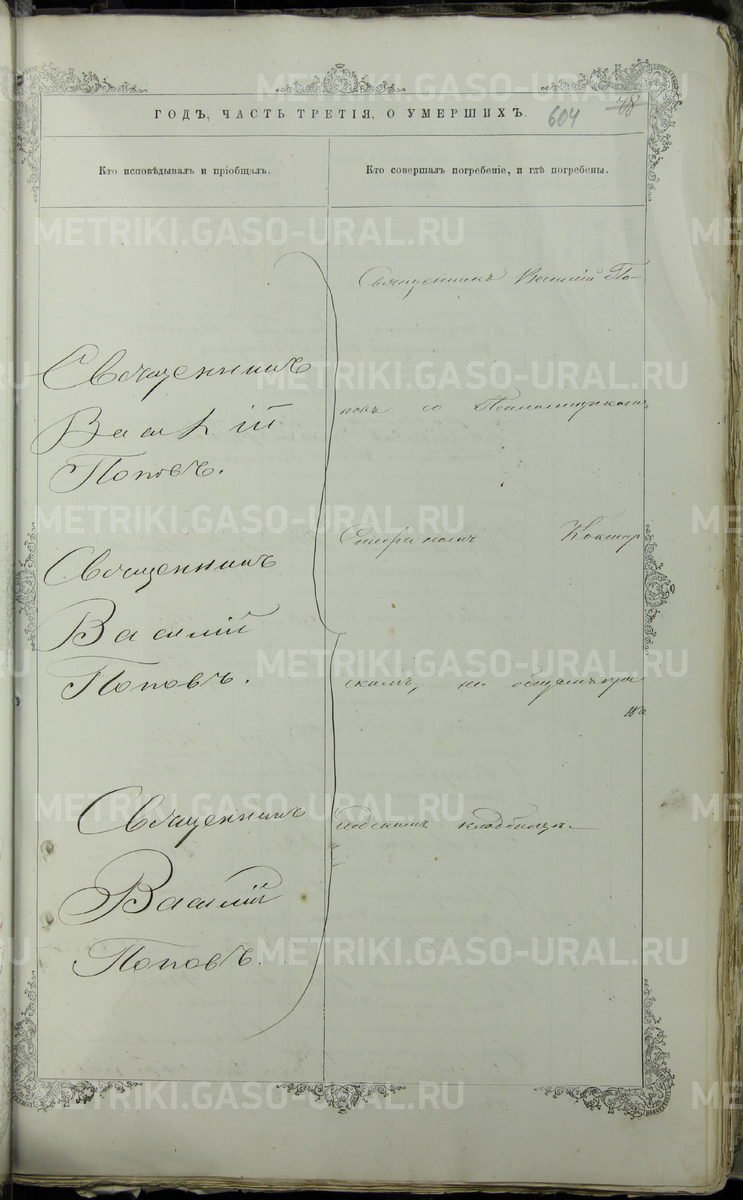 ГОДЪ, ЧАСТЬ ТРЕТІЯ, О УМЕРШИХЪ.
604
78
Кто исповѣдывалъ и пріобщалъ.
Кто совершалъ погребеніе, и гдѣ погребены.
Священникъ
Василій
Поповъ.
Священникъ
Василій
Поповъ.
Священникъ
Василій
Поповъ.
Священникъ Василій По-
повъ со Псаломщикомъ
скимъ, на общемъ при
ходскомъ кладбищѣ.
METRIKI.GASO-URAL.RU